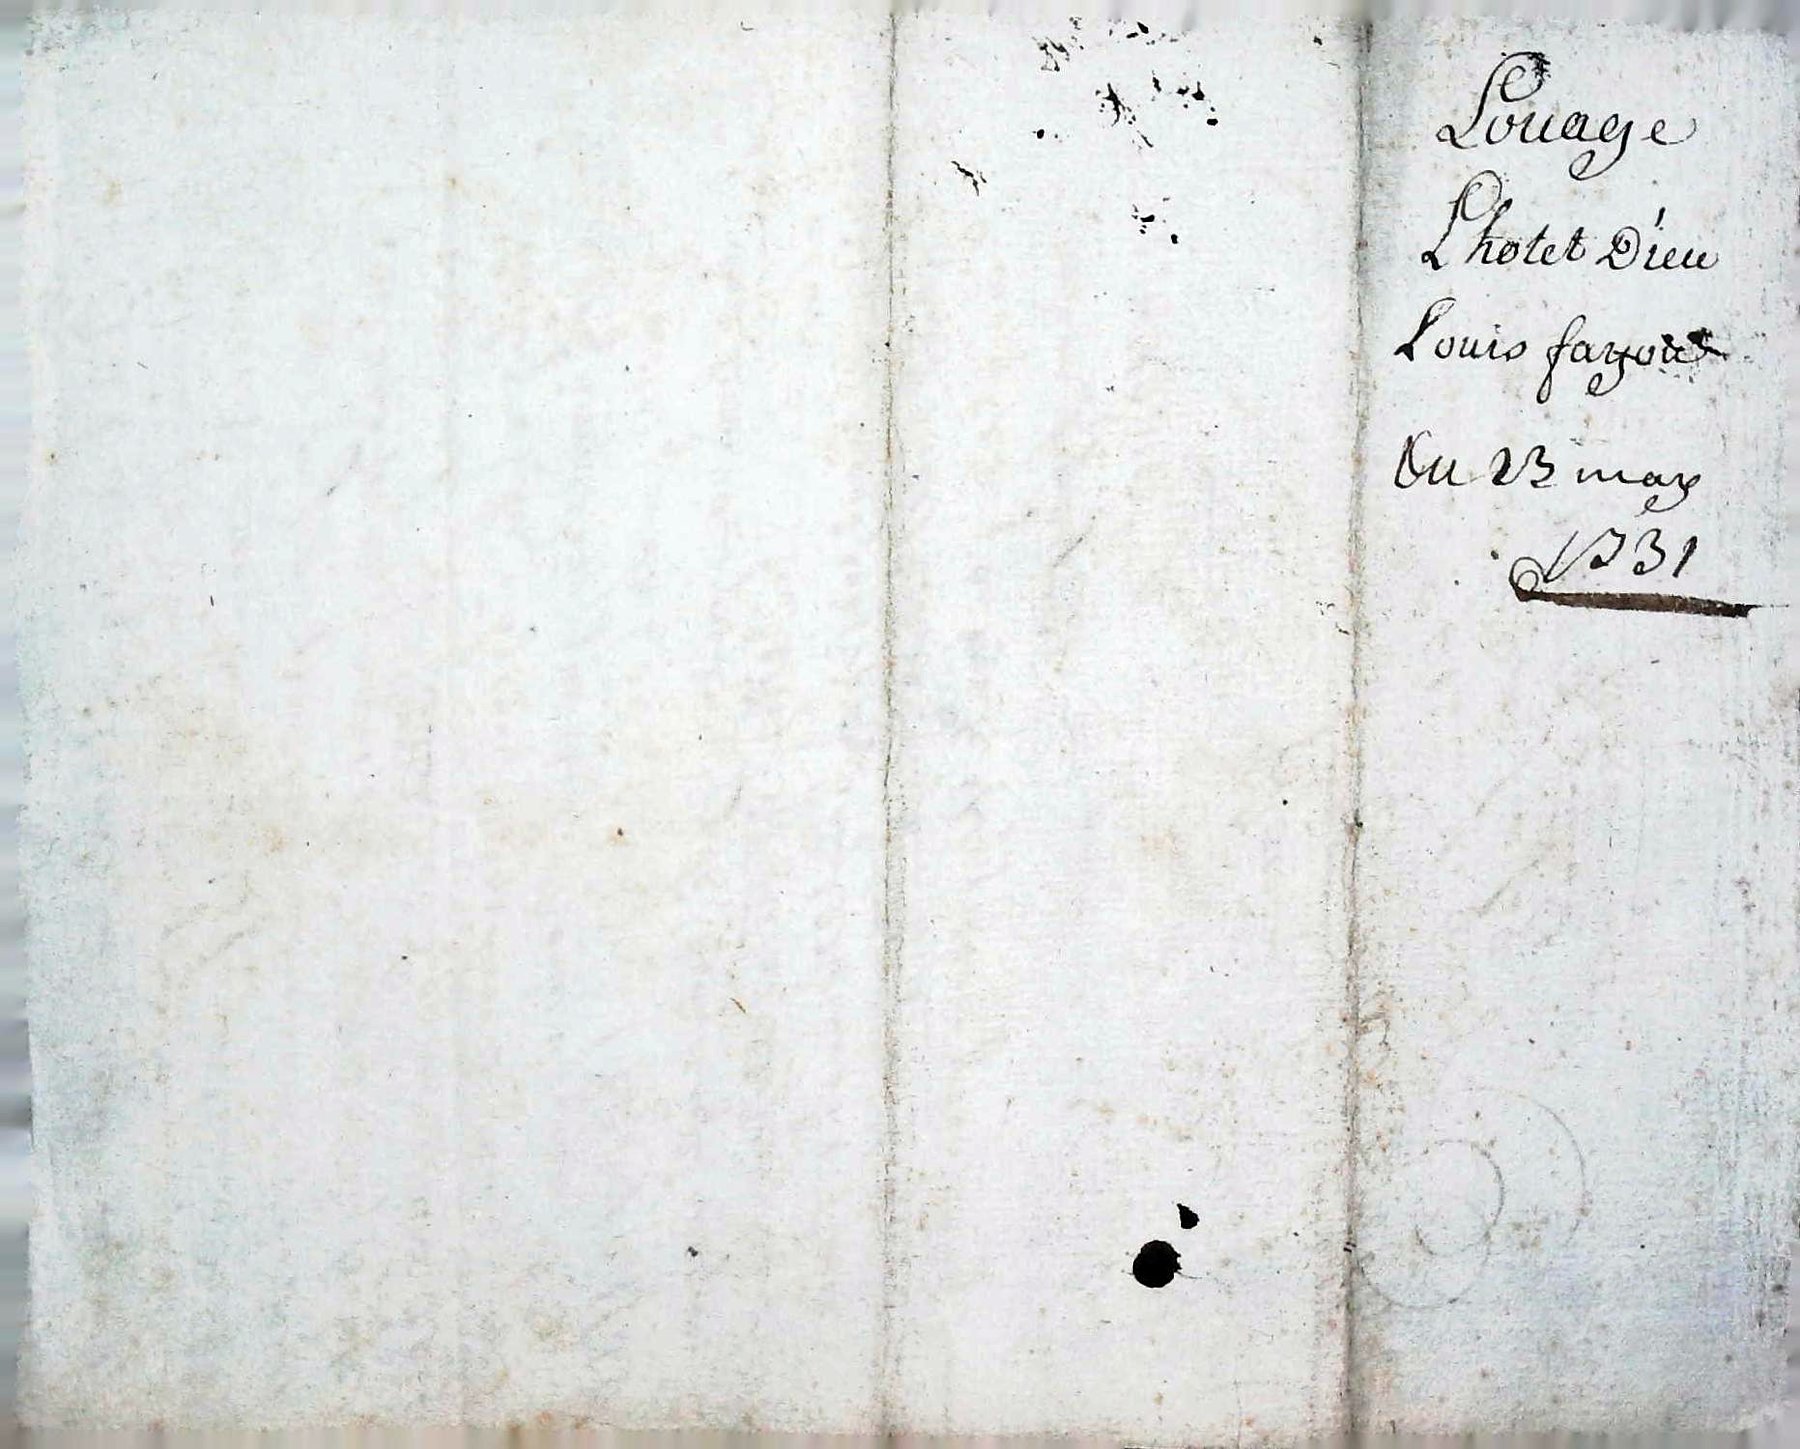 Louage
Lhotel Dieu
Louis fayou
Du 23 may
1731